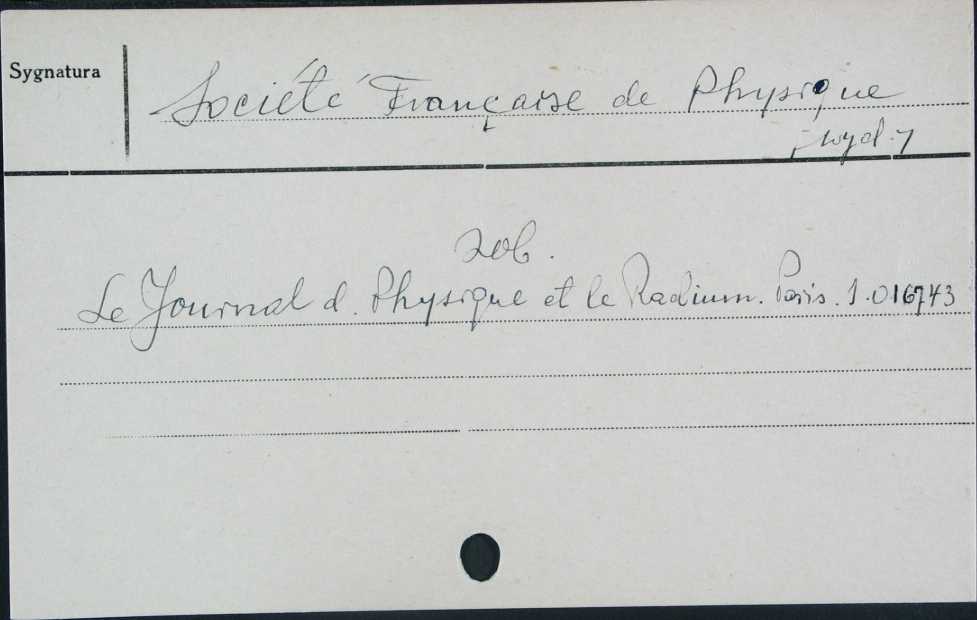 Sygnatura
Société Française de Physique
; wyd. 7
zob.
Le Journal d. Physique et le Radium. Paris. 1.016743